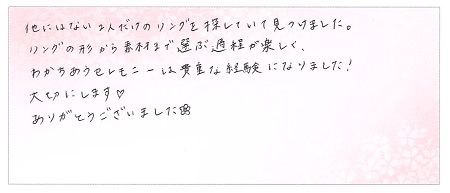 他にはない2人だけのリングを探していて見つけました。
リングの形から素材まで選ぶ過程が楽しく、
わかちあうセレモニーは貴重な経験になりました!
大切にします♡
ありがとうございました🌸